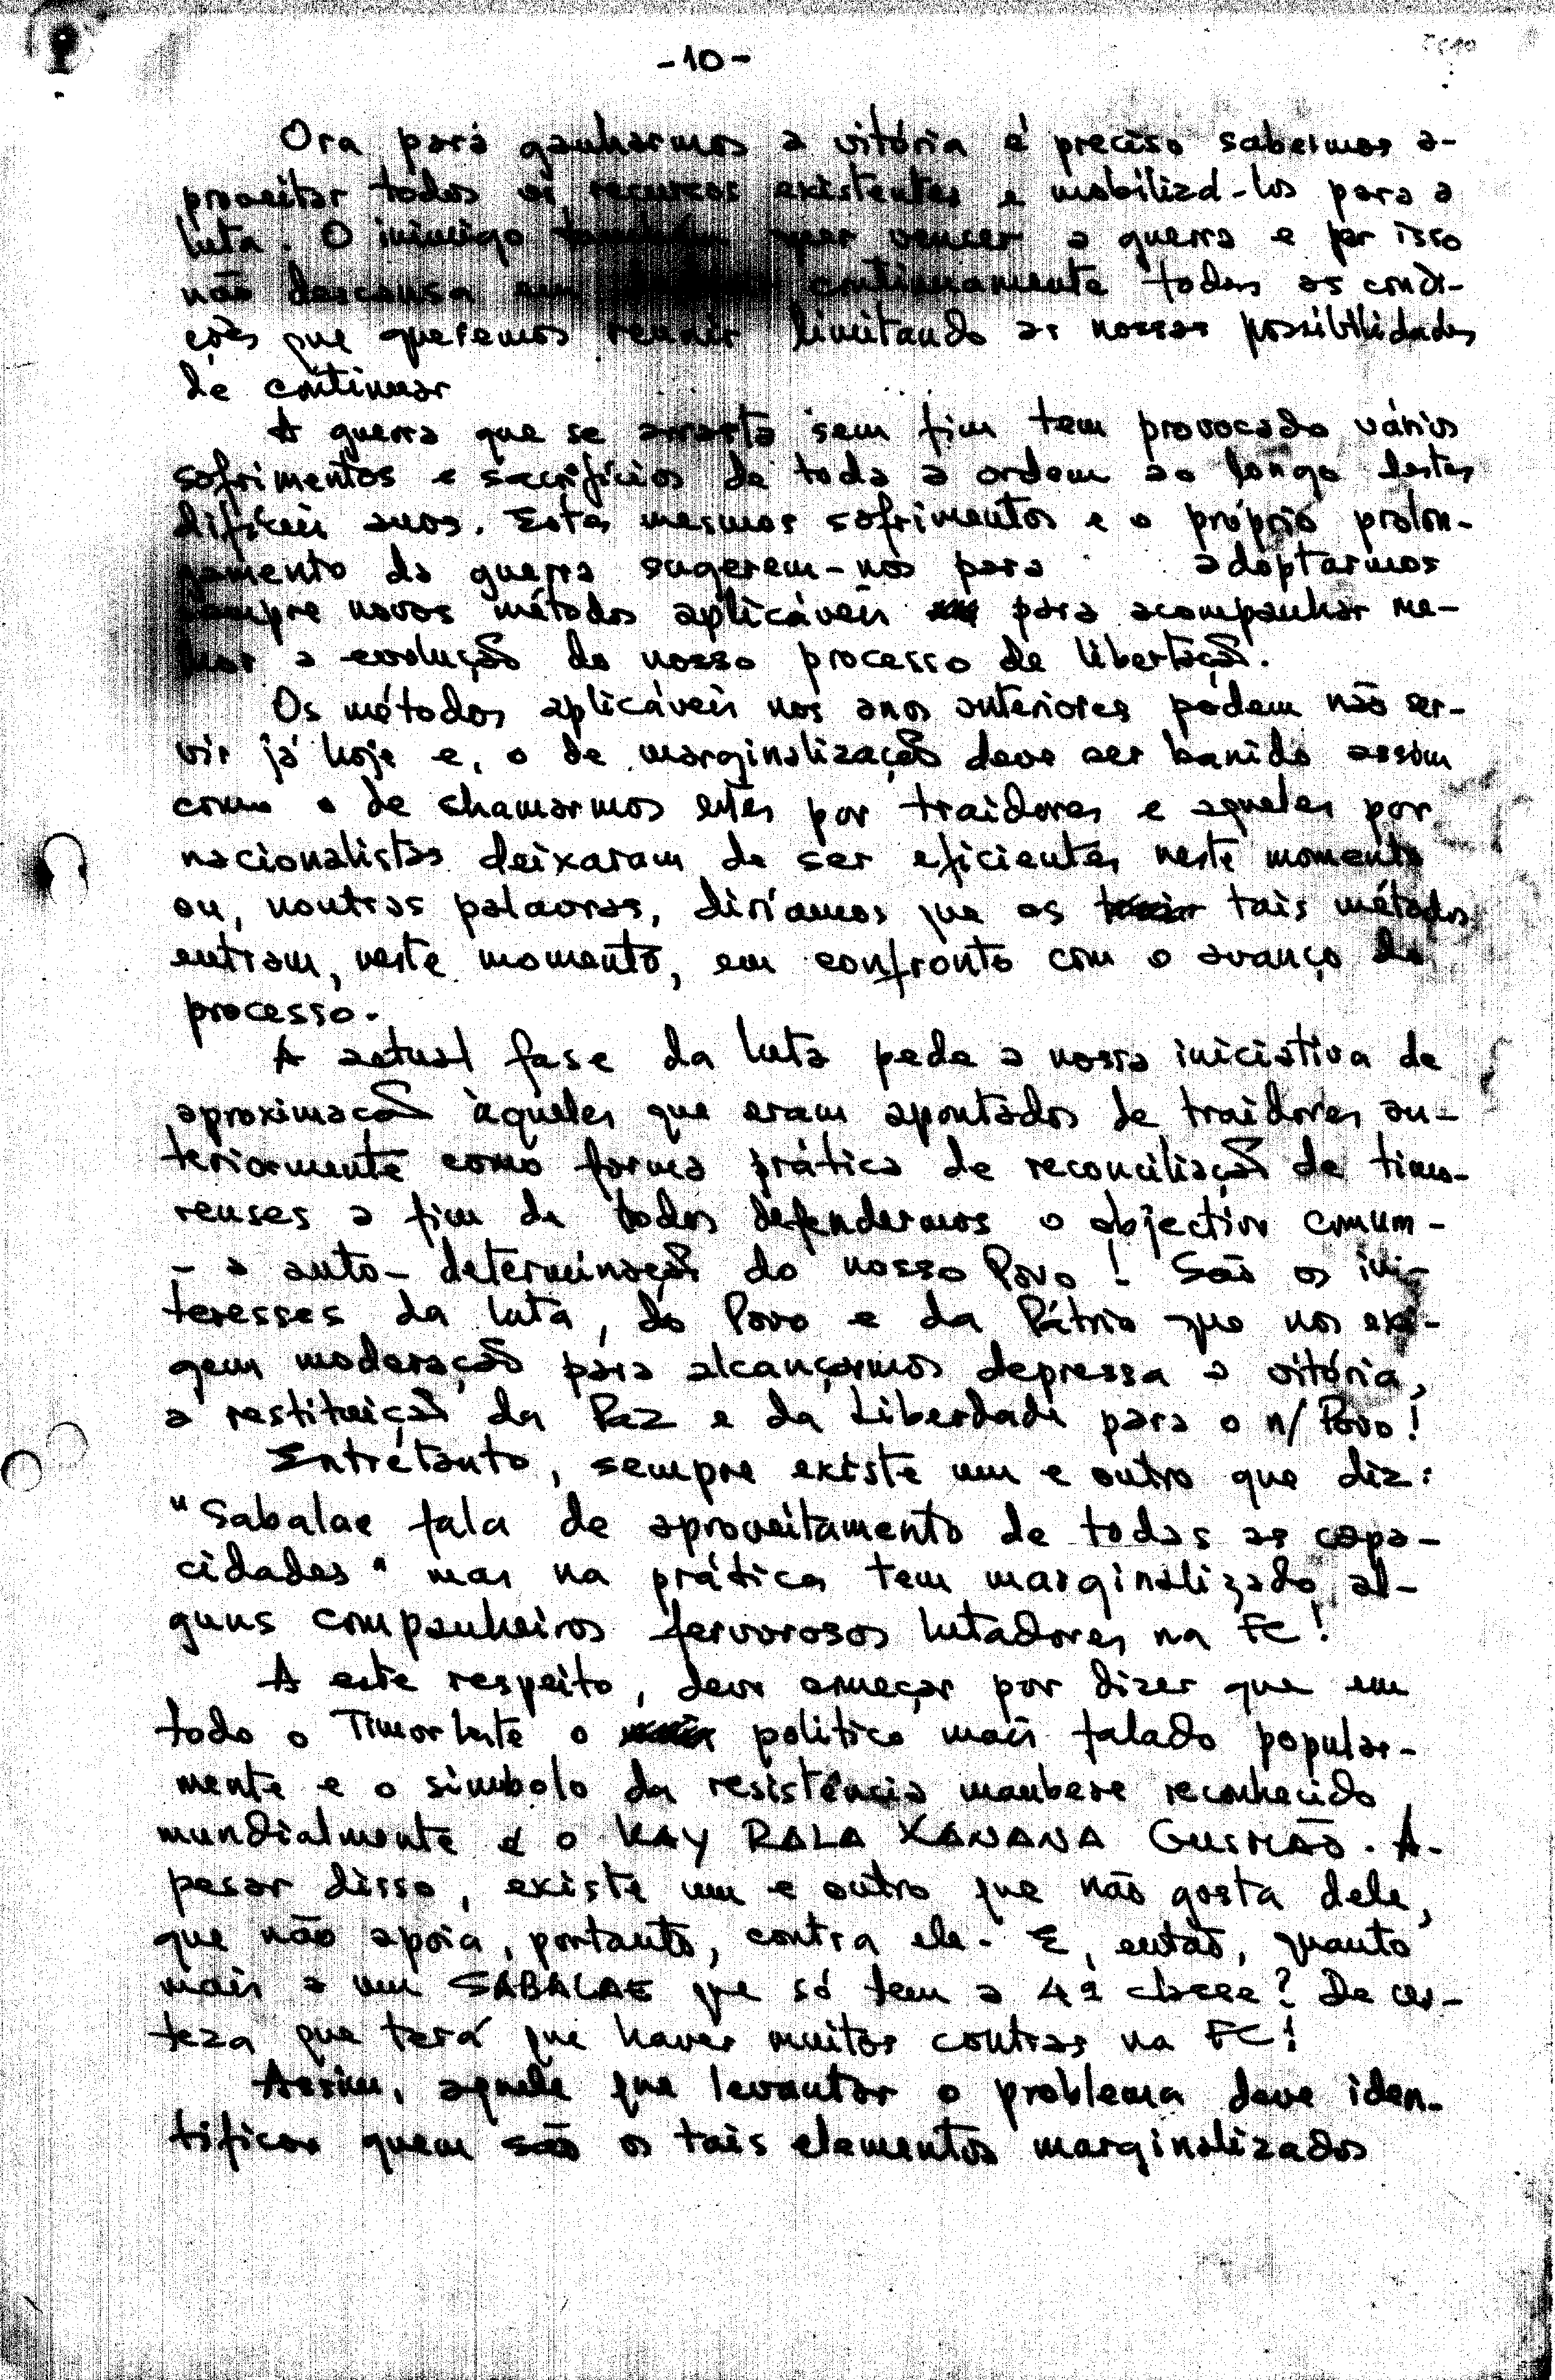 -10-
Ora para ganharmos a vitória é preciso sabermos a-
proveitar todos os recursos existentes e mobilizá-los para a
luta. O inimigo também quer vencer a guerra e por isso
não descansa em continuamente todas as condi-
ções que queremos reunir limitando as nossas possibilidades
de continuar
A guerra que se arrasta sem fim tem provocado vários
sofrimentos e sacrifícios de toda a ordem ao longo destes
difíceis anos. Estes mesmos sofrimentos e o próprio prolon-
gamento da guerra sugerem-nos para adoptarmos
sempre novos métodos aplicáveis para acompanhar me-
lhor a evolução do nosso processo de libertação.
Os métodos aplicáveis nos anos anteriores podem não ser-
vir já hoje e, o de marginalização deve ser banido assim
como o de chamarmos estes por traidores e aqueles por
nacionalistas deixaram de ser eficientes neste momento
ou, noutras palavras, diríamos que os tais métodos
entram, neste momento, em confronto com o avanço do
processo.
A actual fase da luta pede a nossa iniciativa de
aproximação àqueles que eram apontados de traidores an-
teriormente como forma prática de reconciliação de timo-
renses a fim de todos defendermos o objectivo comum-
- a auto-determinação do nosso Povo! São os in-
teresses da luta, do Povo e da Pátria que nos exi-
gem moderação para alcançarmos depressa a vitória,
a restituição da Paz e da Liberdade para o n/ Povo!
Entretanto, sempre existe um e outro que diz:
"Sabalae fala de aproveitamento de todas as capa-
cidades" mas na prática tem marginalizado al-
guns companheiros fervorosos lutadores na FC!
A este respeito, devo começar por dizer que em
todo o Timor Leste o politico mais falado popular-
mente e o simbolo da resistência maubere reconhecido
mundialmente é o KAY RALA XANANA GUSMÃO. A-
pesar disso, existe um e outro que não gosta dele,
que não apoia, portanto, contra ele. E, então, quanto
mais a um SABALAE que só tem a 4ª classe? De cer-
teza que terá que haver muitos contras na FC!
Assim, aquele que levantar o problema deve iden-
tificar quem são os tais elementos marginalizados